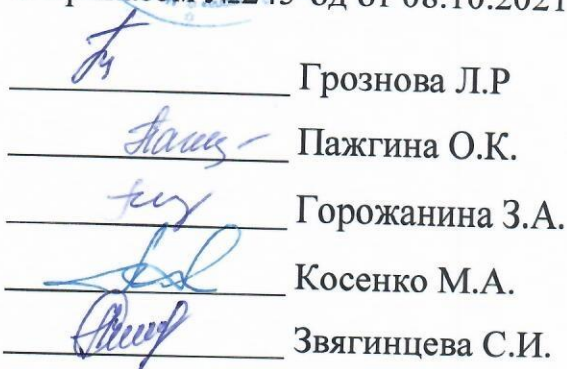 от 08.10.2021
Грознова Л.Р
Пажгина О.К.
Горожанина З.А.
Косенко М.А.
Звягинцева С.И.